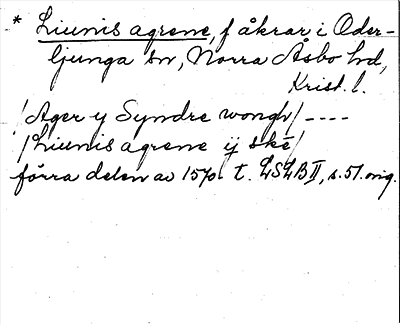 * Liunis agrene, f åkrar i Oder-
ljunga sn, Norra Åsbo hd,
Krist. l.
/Ager y Syndre wongh/----
/Liunis agrene ij ske/
förra delen av 1570-t. LSLB II, s. 51. orig.